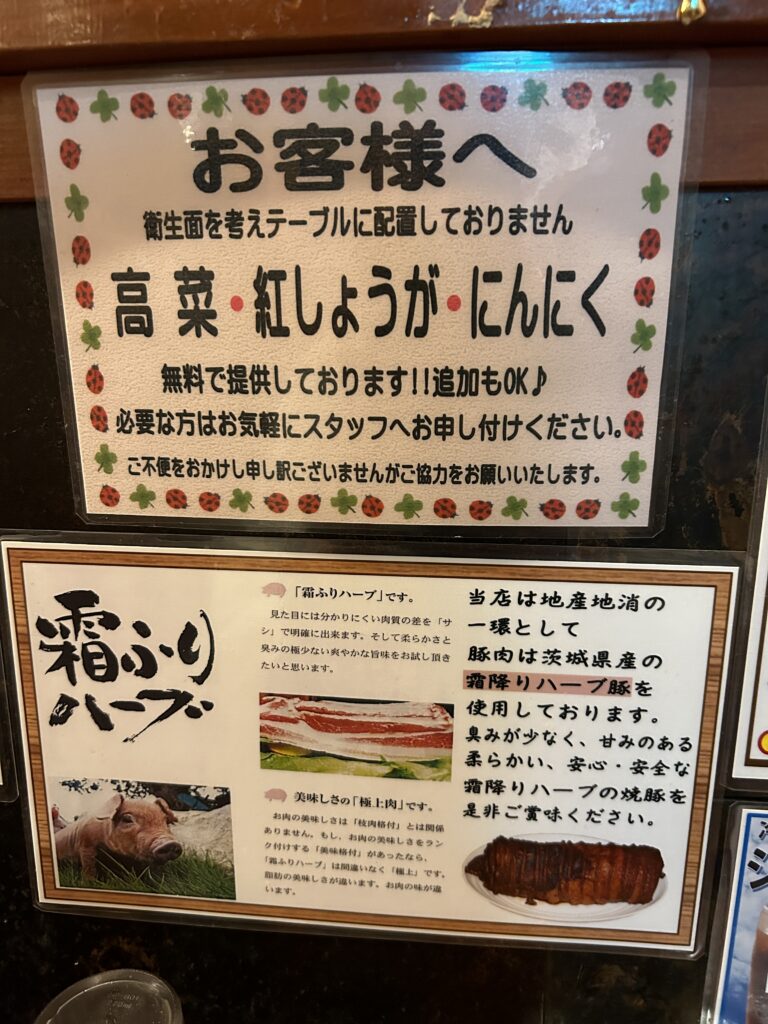 お客様へ
衛生面を考えテーブルに配置しておりません
高菜・紅しょうが・にんにく
無料で提供しております!!追加もOK♪
必要な方はお気軽にスタッフへお申し付けください。
ご不便をおかけし申し訳ございませんがご協力をお願いいたします。
霜ふり
ハーブ
「霜ふりハーブ」です。
見た目には分かりにくい肉質の差を「サ
シ」で明確に出来ます。そして柔らかさと
臭みの極少ない爽やかな旨味をお試し頂き
たいと思います。
美味しさの「極上肉」です。
お肉の美味しさは「枝肉格付」とは関係
ありません。もし、お肉の美味しさをラン
ク付けする「美味格付」があったなら、
「霜ふりハーブ」は間違いなく「極上」です。
脂肪の美味しさが違います。お肉の味が違
います。
当店は地産地消の
一環として
豚肉は茨城県産の
霜降りハーブ豚を
使用しております。
臭みが少なく、甘みのある
柔らかい、安心・安全な
霜降りハーブの焼豚を
是非ご賞味ください。